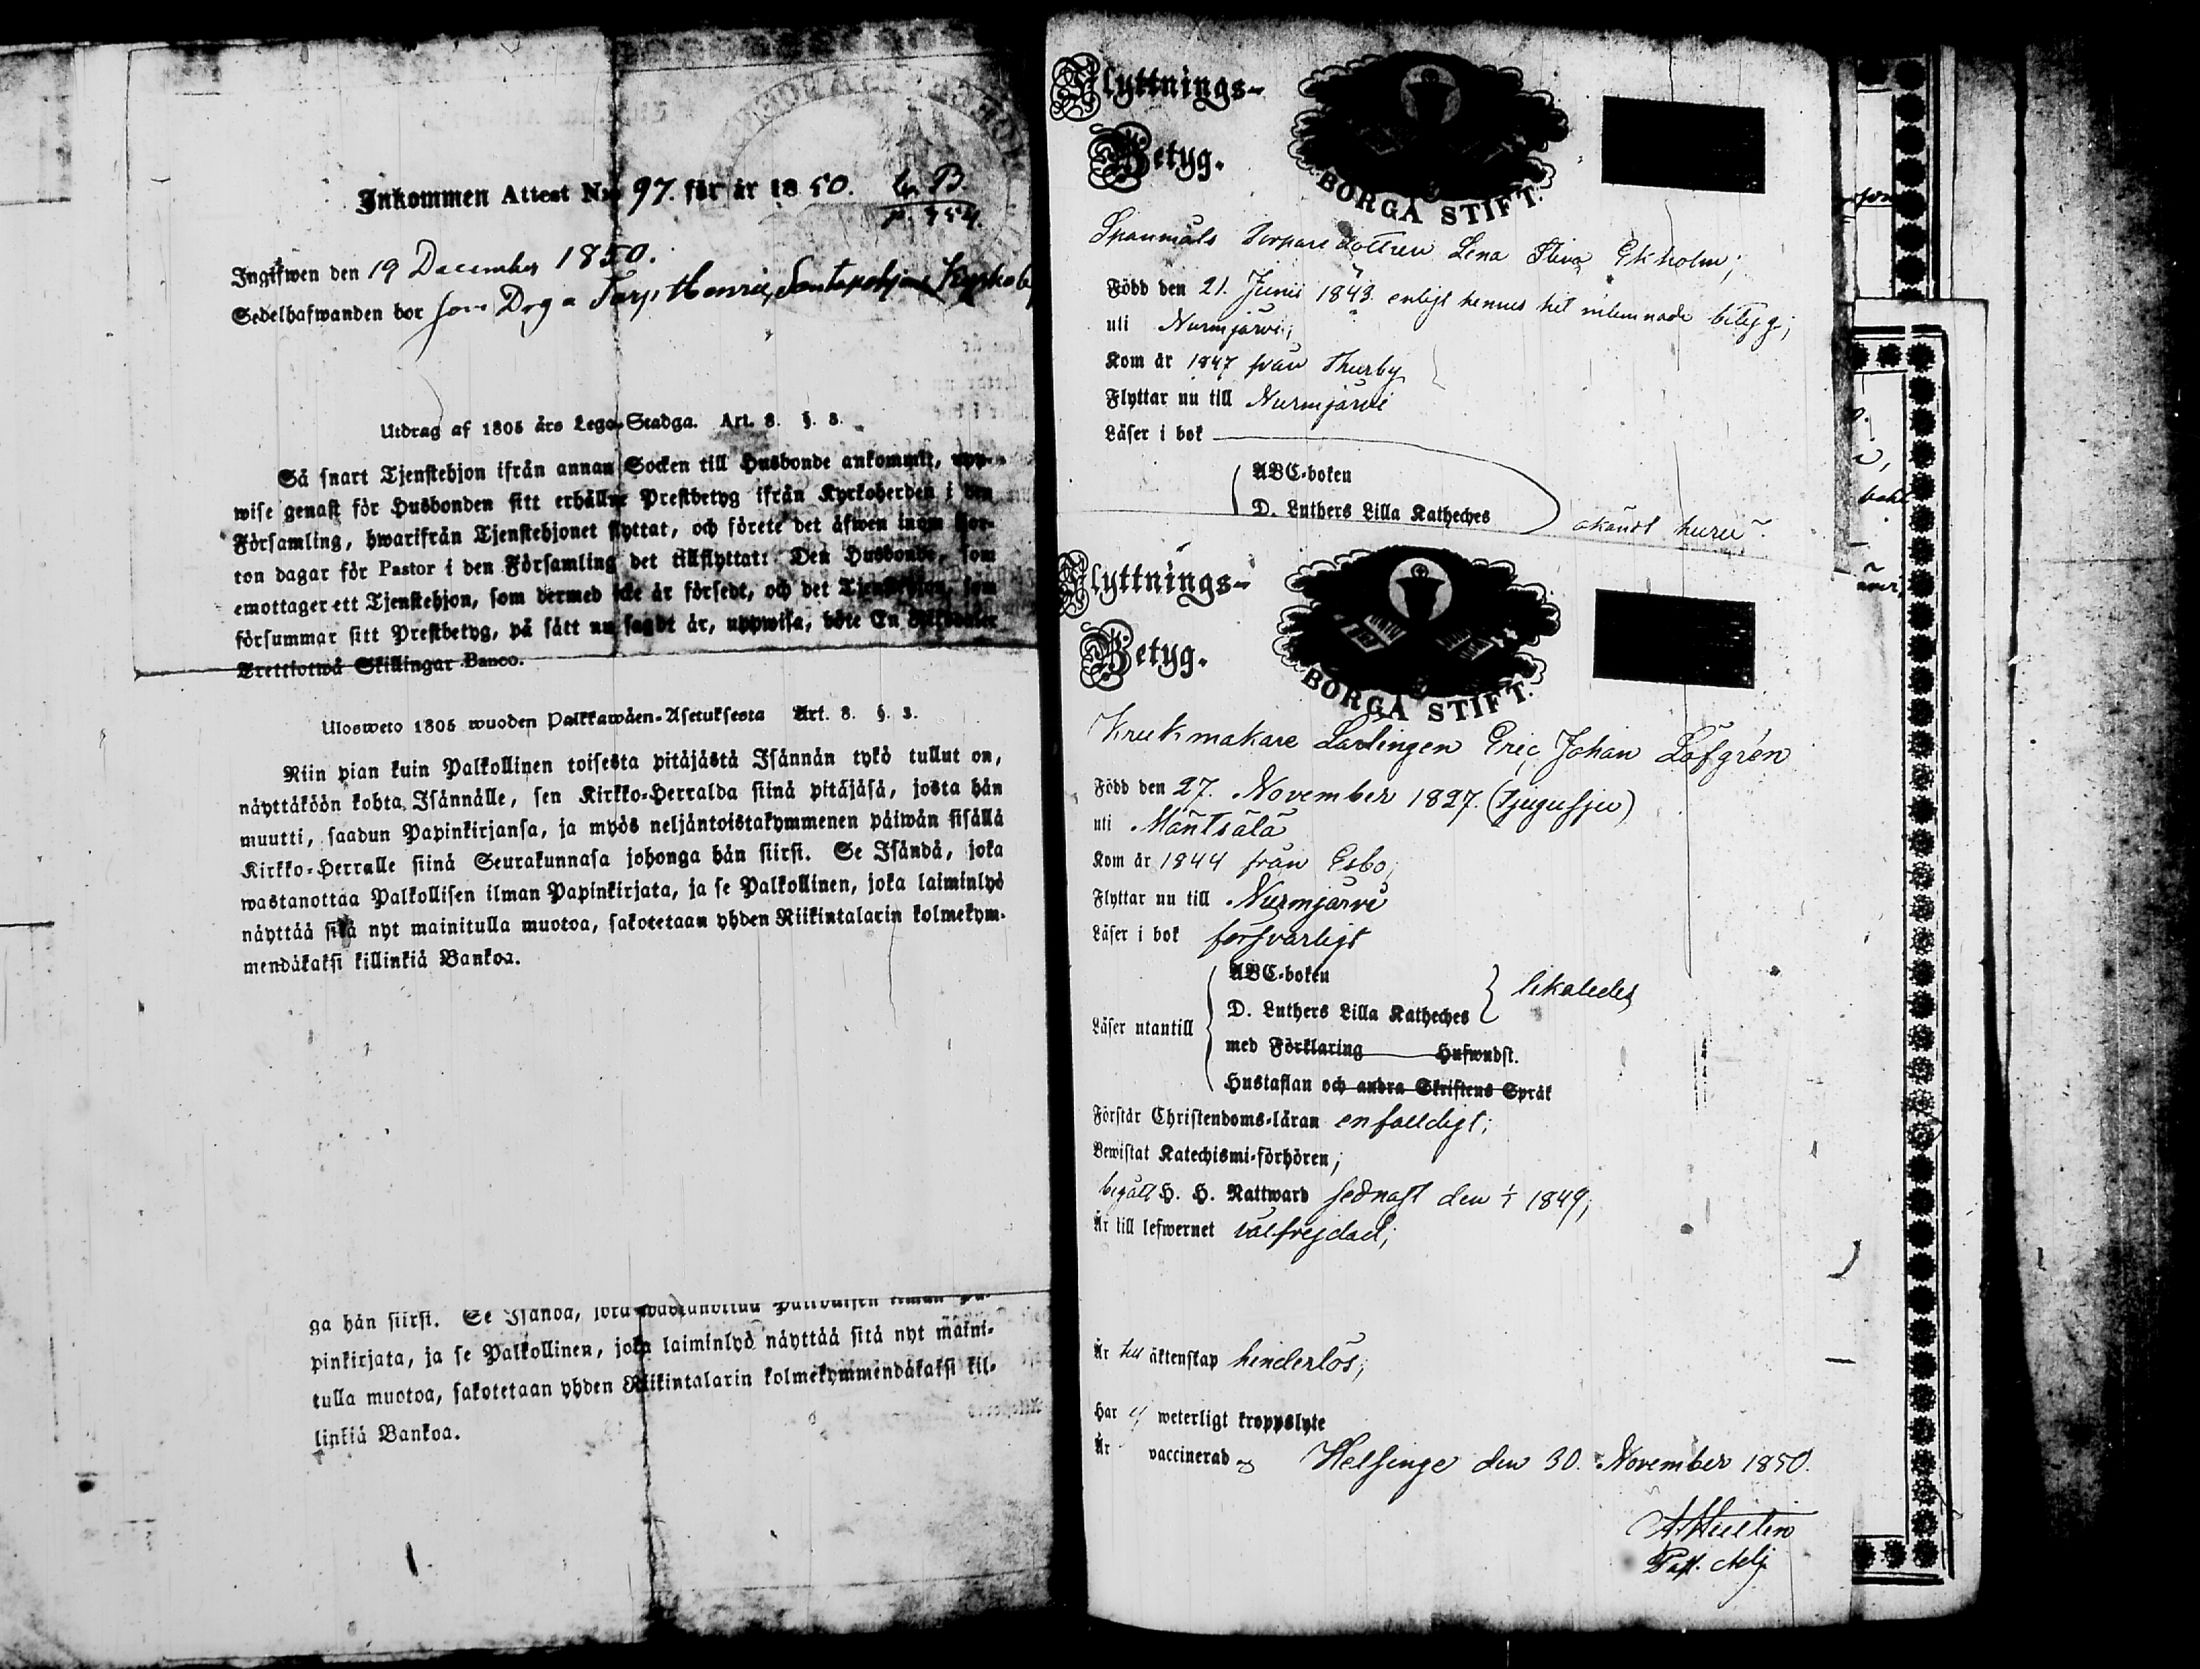 Inkommen Attest N:o 97. för år 1850.
Ingifwen den 19 December 1850.
Sedelhafwanden bor som Drg a Torp Henric
Utdrag af 1805 års Lego-Stadga. Art. 8. §. 3.
Så snart Tjenstehjon ifrån annan Socken till Husbonde ankommit, upp-
wise genast för Husbonden sitt erhållne Prestbetyg ifrån Kyrkoherden i den
Församling, hwarifrån Tjenstehjonet flyttat, och förete det äfwen inom fjor-
ton dagar för Pastor i den Församling det tillflyttat: Den Husbonde, som
emottager ett Tjenstehjon, som dermed icke är försedt, och det Tjenstehjon, som
försummar sitt Prestbetyg, på sätt nu sagdt är, uppwisa, böte En Riksdaler
Trettiotwå Skillingar Banco.
Ulosweto 1805 wuoden Palkkawäen-Asetuksesta Art. 8. §. 3.
Niin pian kuin Palkollinen toisesta pitäjästä Isännän tykö tullut on,
näyttäköön kohta Isännälle, sen Kirkko-Herralda siinä pitäjäsä, josta hän
muutti, saadun Papinkirjansa, ja myös neljäntoistakymmenen päiwän sisällä
Kirkko-Herralle siinä Seurakunnasa johonga hän siirsi. Se Isändä, joka
wastanottaa Palkollisen ilman Papinkirjata, ja se Palkollinen, joka laiminlyö
näyttää sitä nyt mainitulla muotoa, sakotetaan yhden Riikintalarin kolmekym-
mendäkaksi killinkiä Bankoa.
ga hän siirsi. Se Isändä, joka wastanottaa Palkollisen ilman Pa-
pinkirjata, ja se Palkollinen, joka laiminlyö näyttää sitä nyt maini-
tulla muotoa, sakotetaan yhden Riikintalarin kolmekymmendäkaksi kil-
linkiä Bankoa.
Flyttnings-
Betyg.
BORGÅ STIFT.
Spanmåls Torpare dottren Lena Stina Ekholm;
Född den 21. Junii 1843. enligt hennes hit inlemnade betyg;
uti Nurmijärvi;
Kom år 1847 från Thurby
Flyttar nu till Nurmijärvi
Läser i bok
ABC-boken
D. Luthers Lilla Katheches okändt huru
Flyttnings-
Betyg.
BORGÅ STIFT.
Krukmakare Lärlingen Eric Johan Löfgrén
Född den 27. November 1827. (tjugusju)
uti Mäntsälä
Kom år 1844 från Esbo;
Flyttar nu till Nurmijärvi
Läser i bok försvarligt
Läser utantill
ABC-boken
D. Luthers Lilla Katheches likaledes
med Förklaring Hufwudst.
Hustaflan och andra Skriftens Språk
Förstår Christendoms-läran enfaldigt;
Bewistat Katechismi-förhören;
begått H. H. Nattward sednast den 1849;
Är till lefwernet välfrejdad;
Är till äktenskap hinderlös;
Har ej weterligt kroppslyte
Är vaccinerad Helsinge den 30. November 1850.
A. Hultin
Past. Adj.